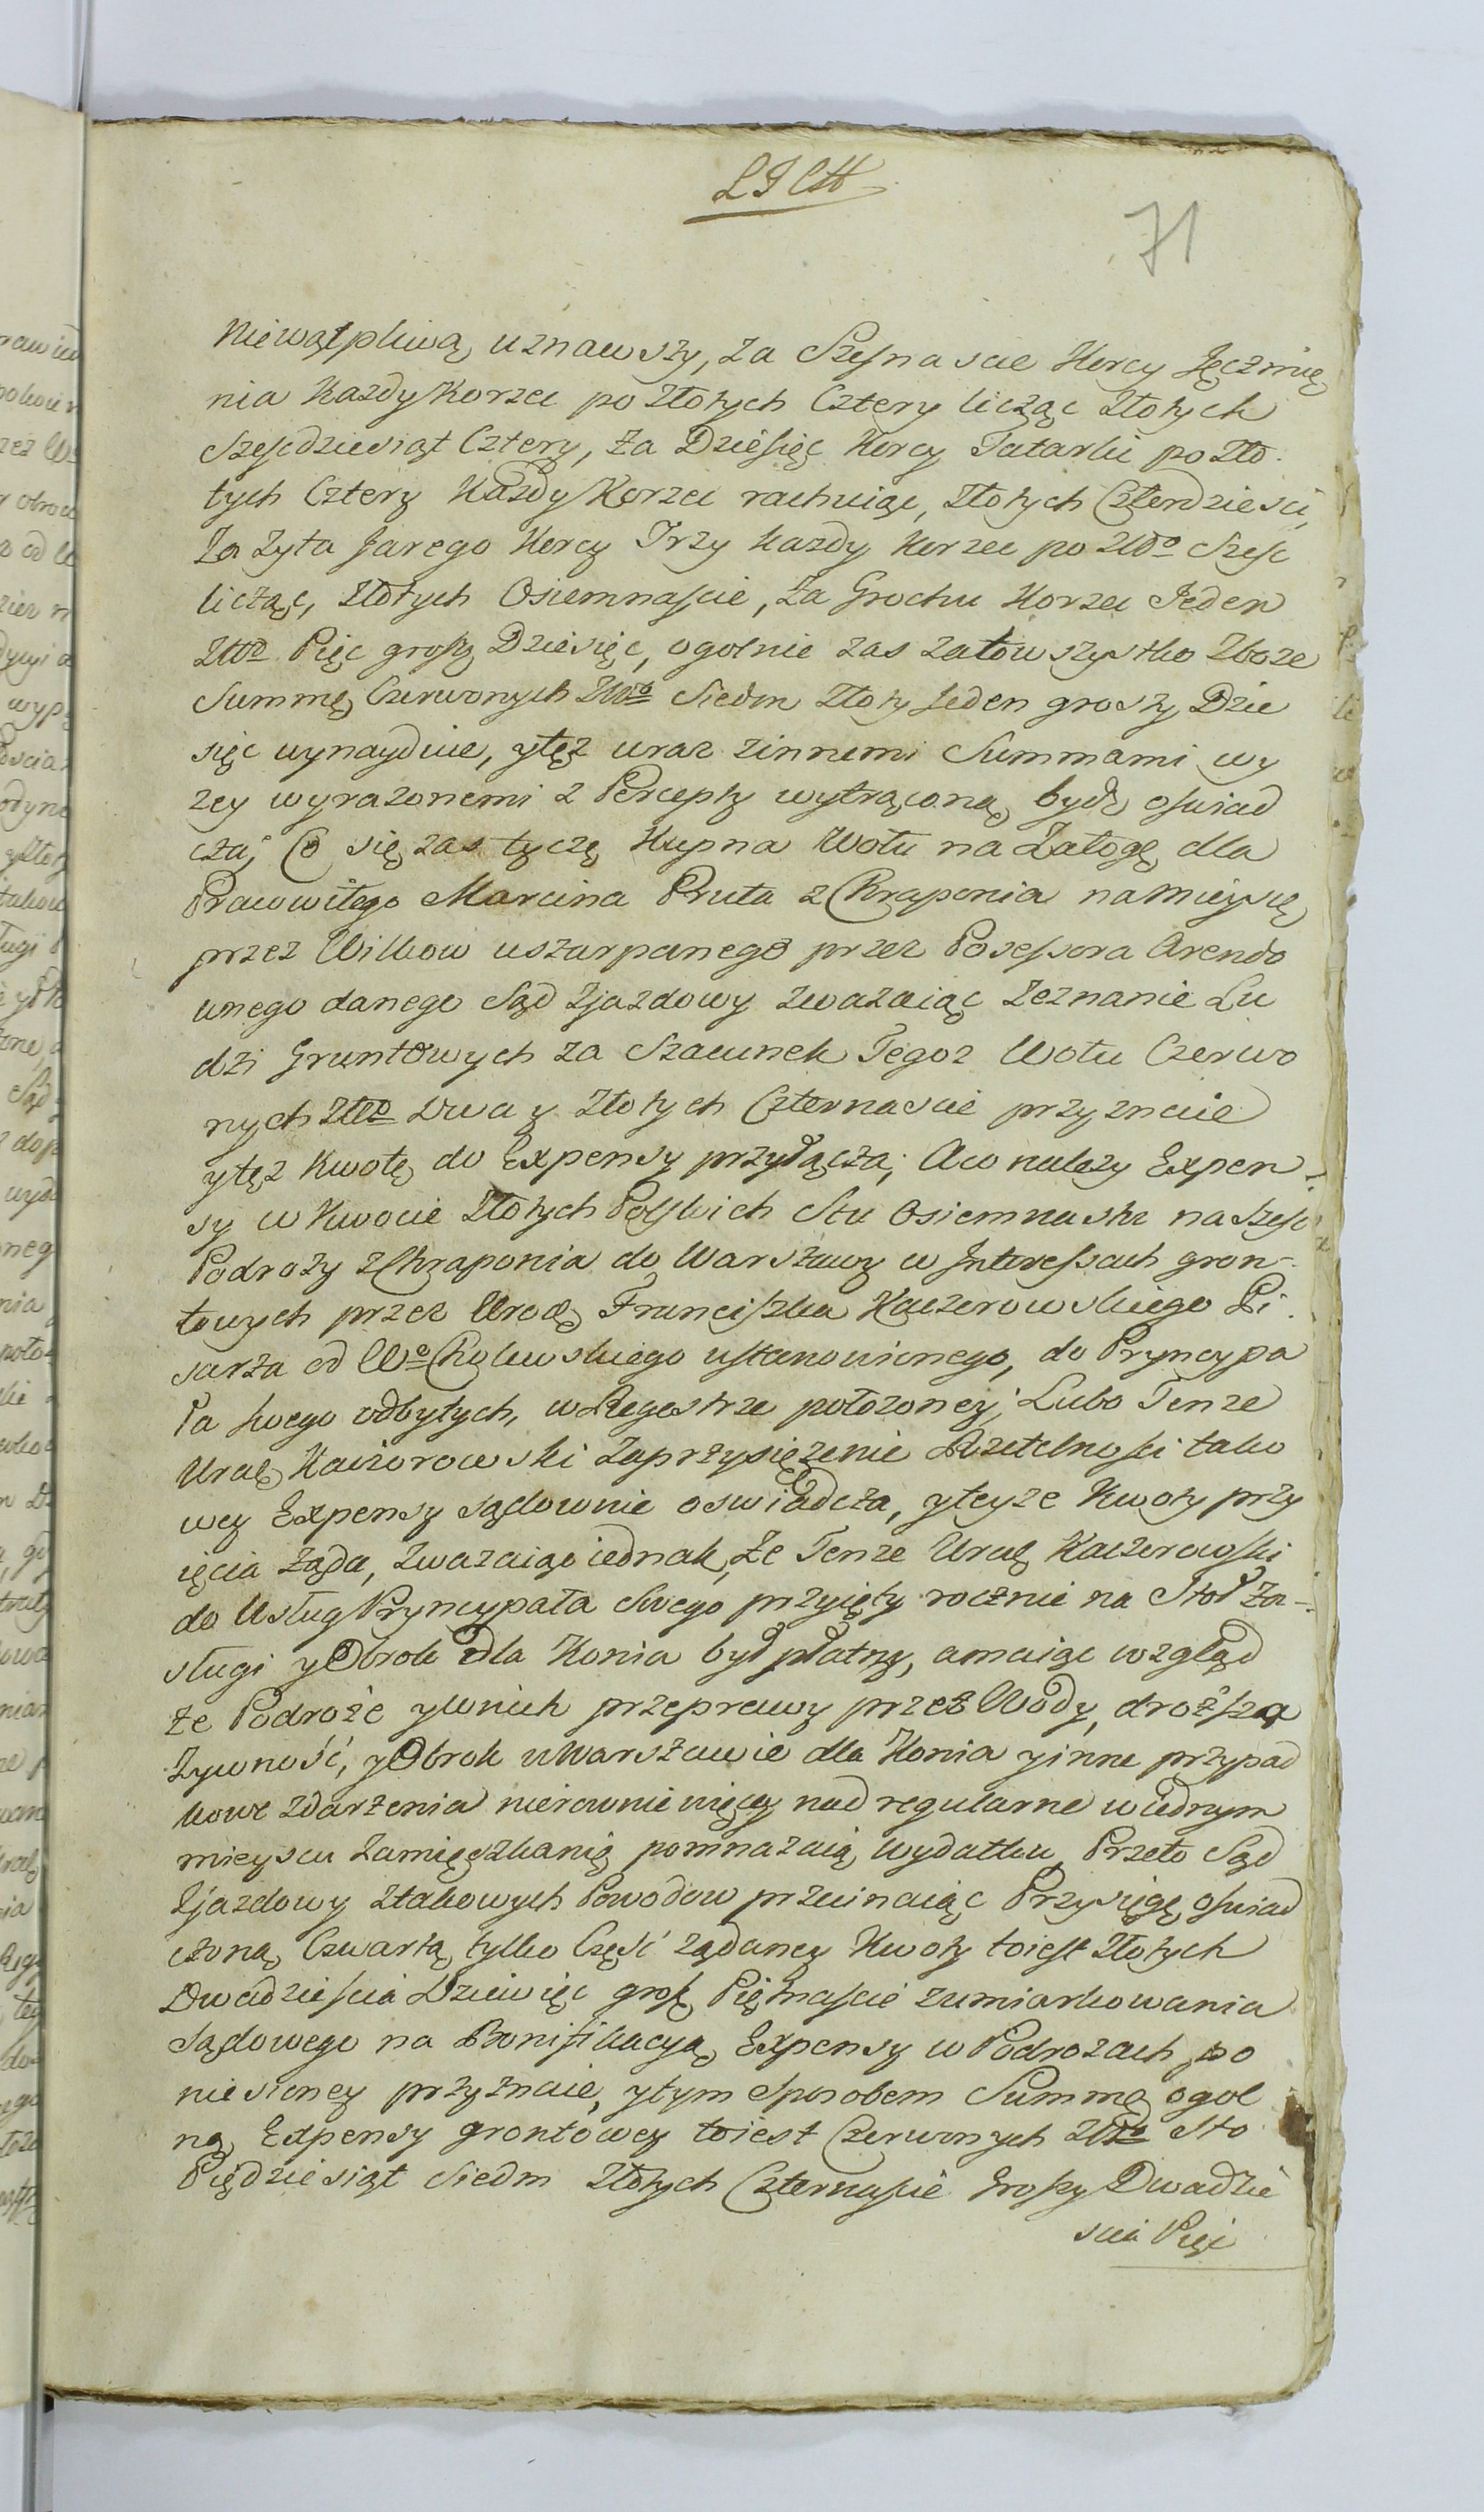 71
Niewątpliwą uznawszy, za Szesnascie Korcy Jęczmię
nia Kazdy Korzec po Złotych Cztery licząc Złotych
Szescdziesiąt Cztery, za Dziesięc Korcy Tatarki po Zło
tych Cztery Kazdy Korzec rachuiąc, Złotych Czterdziesci,
Za Zyta Jarego Korcy Trzy kazdy Korzec po Złło Szesc
licząc, Złotych Osiemnascie, za Grochu Korzec Jeden
Złło Pięc groszy Dziesięc, ogolnie zas zato wszystko Zboze
Summę Czerwonych Złło Siedm Złoty Jeden groszy Dzie
sięc wynayduie, ytęz uraz zinnemi Summami wy
zey wyrazonemi z Percepty wytrąconą bydz oswiad
cza; Co się zas tyczę Kupna Wołu na Załogę dla
Pracowitego Marcina Pruta z Chraponia na Mieysce
przez Wilkow uszarpanego przez Posessora Arendo
wnego danego Sąd Zjazdowy zwazaiąc zeznanie Lu
dzi Gruntowych za Szacunek Tegoz Wołu Czerwo
nych Złło Dwa y Złotych Czternascie przyznaie
ytęz Kwotę do Expensy przyłącza; Aco nalezy Expen
sy w Kwocie Złotych Polskich Stu Osiemnastu na szesc
Podrozy z Chraponia do Warszawy w Interessach gron-
towych przez Urodz Franciszka Kaczorowskiego Pi
sarza od Wo ustanowionego, do Pryncypa
ła swego odbytych, w Regestrze połozoney; Lubo Tenze
Urodz Kaczorowski Zaprzysięzenie Rzetelnosci tako
wey Expensy sądownie oswiadcza, yteyze Kwoty przy
ięcia ząda, zwazaiąc iednak, ze Tenze Urodz Kaczorowski
do Usług Pryncypała Swego przyięty rocznie na Stoł za-
sługi y Obrok dla Konia był płatny, amaiąc wzgląd
ze Podroże ywnich przeprawy przez Wody, droższa
Zywność, y Obrok w Warszawie dla Konia yinne przypad
kowe zdarzenia nierownie więcey nad regularne w iednym
mieyscu zamięszkanię pomnazaią wydatku, Przeto Sąd
Zjazdowy ztakowych Powodow przecinaiąc Przysięgę oswiad
czoną Czwartą tylko Część ządaney Kwoty toiest Złotych
Dwadziescia Dziewięc grosz Piętnascie zumiarkowania
Sądowego na Bonifikacyą Expensy w Podrozach po
niesioney przyznaie, ytym Sposobem Summę ogol
ną Expensy grontowey toiest Czerwonych Złło Sto
Pięcdziesiąt Siedm Złotych Czternascie groszy Dwadzie
scia Pięc